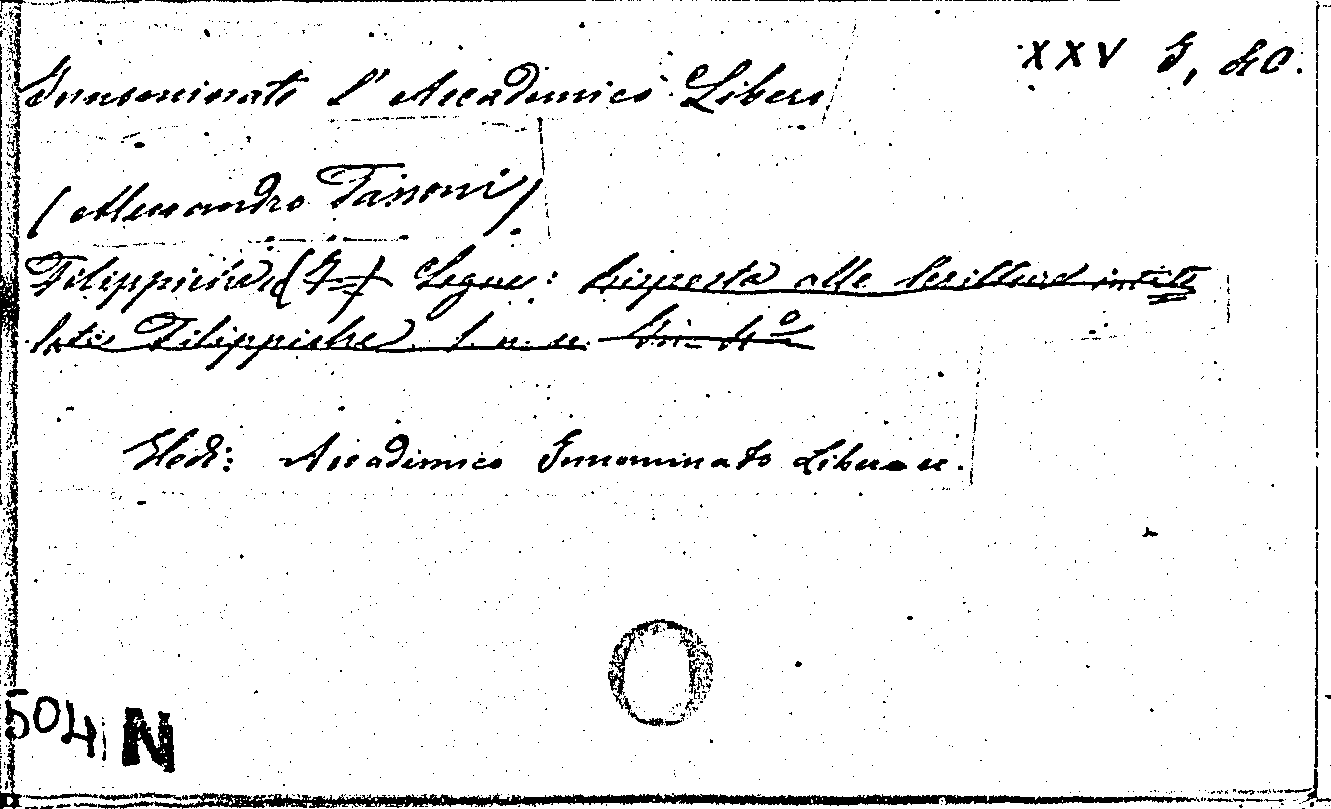 XXV G, 40.
Innominato l' Accademico Libero
(Alessandro Tassoni)
Filippiche (2) Segue: Risposta alle Scritture intito
late Filippiche. s. n. n. in 4º
Vedi: Accademico Innominato Libero
504 N